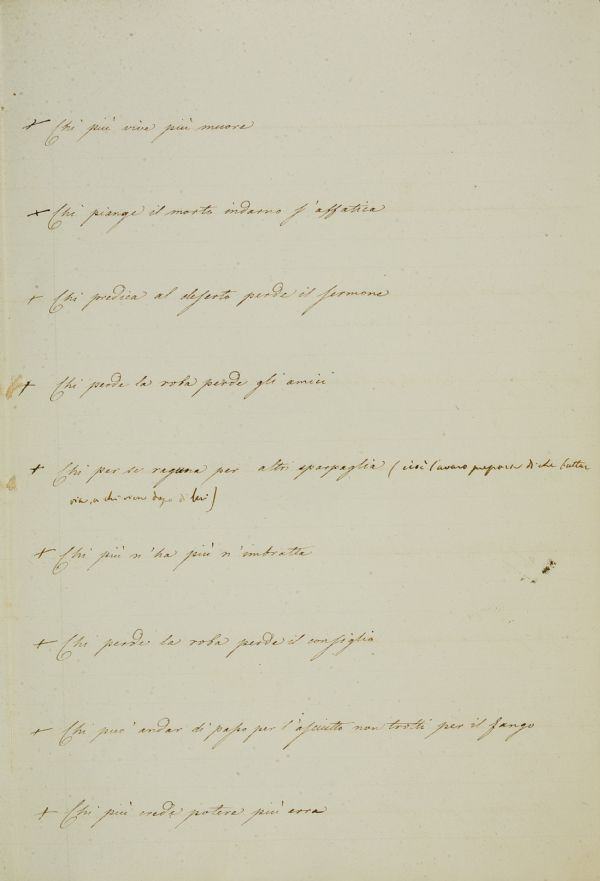 + Chi più vive più muore
+ Chi piange il morto indarno s'affatica
+ Chi predica al deserto perde il sermone
+ Chi perde la roba perde gli amici
+ Chi per se raguna per altri sparpaglia (cioè l'avaro prepara di che buttar
via, a chi vien dopo di lui)
+ Chi più n'ha più n'imbratta
+ Chi perde la roba perde il consiglio
+ Chi puo' andar di passo per l'asciutto non trotti per il fango
+ Chi più crede potere più erra